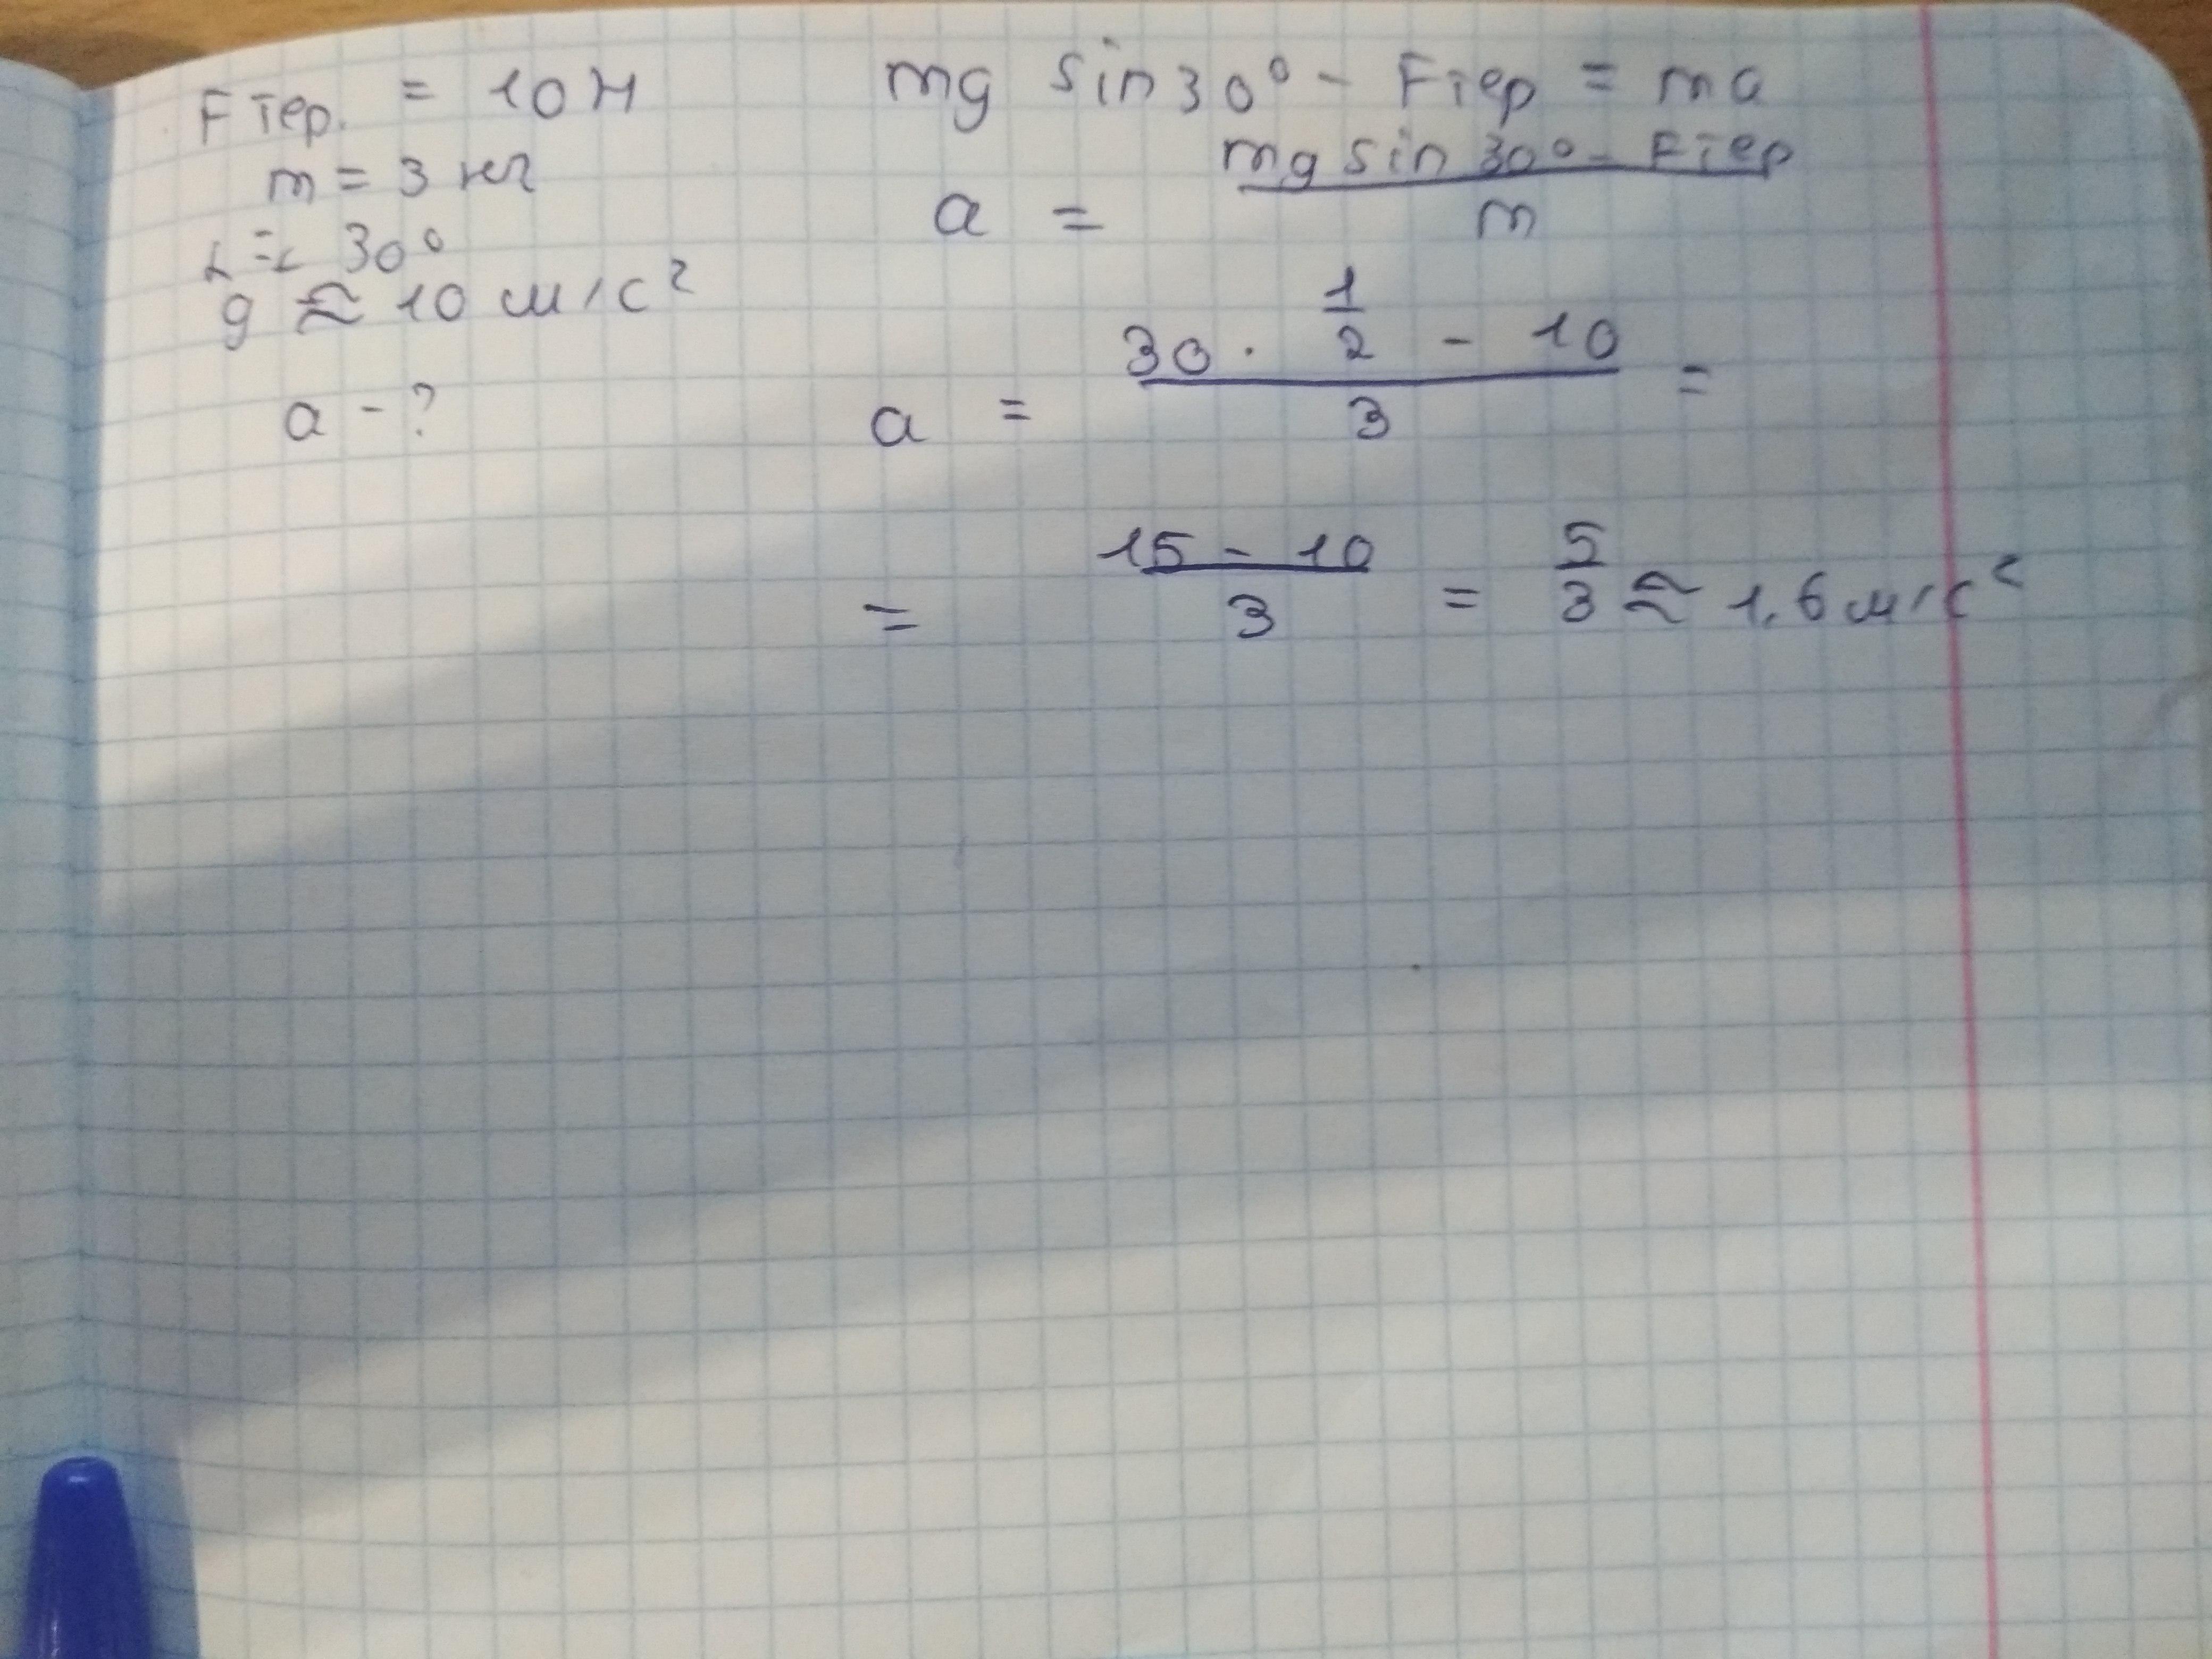 Fтер. = 10 Н
m = 3 кг
α = 30°
g ≈ 10 м/с²
a - ?
mg sin30° - Fтер = ma
a = mg sin 30° - Fтер / m
a = 30 · 1/2 - 10 / 3 =
= 15 - 10 / 3 = 5/3 ≈ 1,6 м/с²